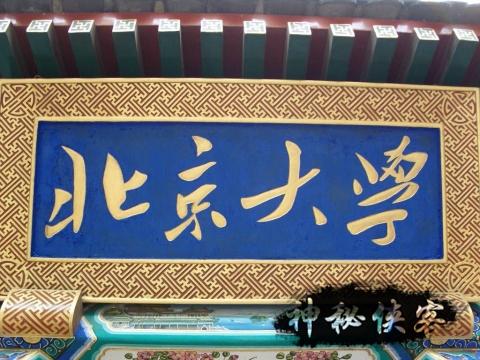 北京大学
神秘侠客